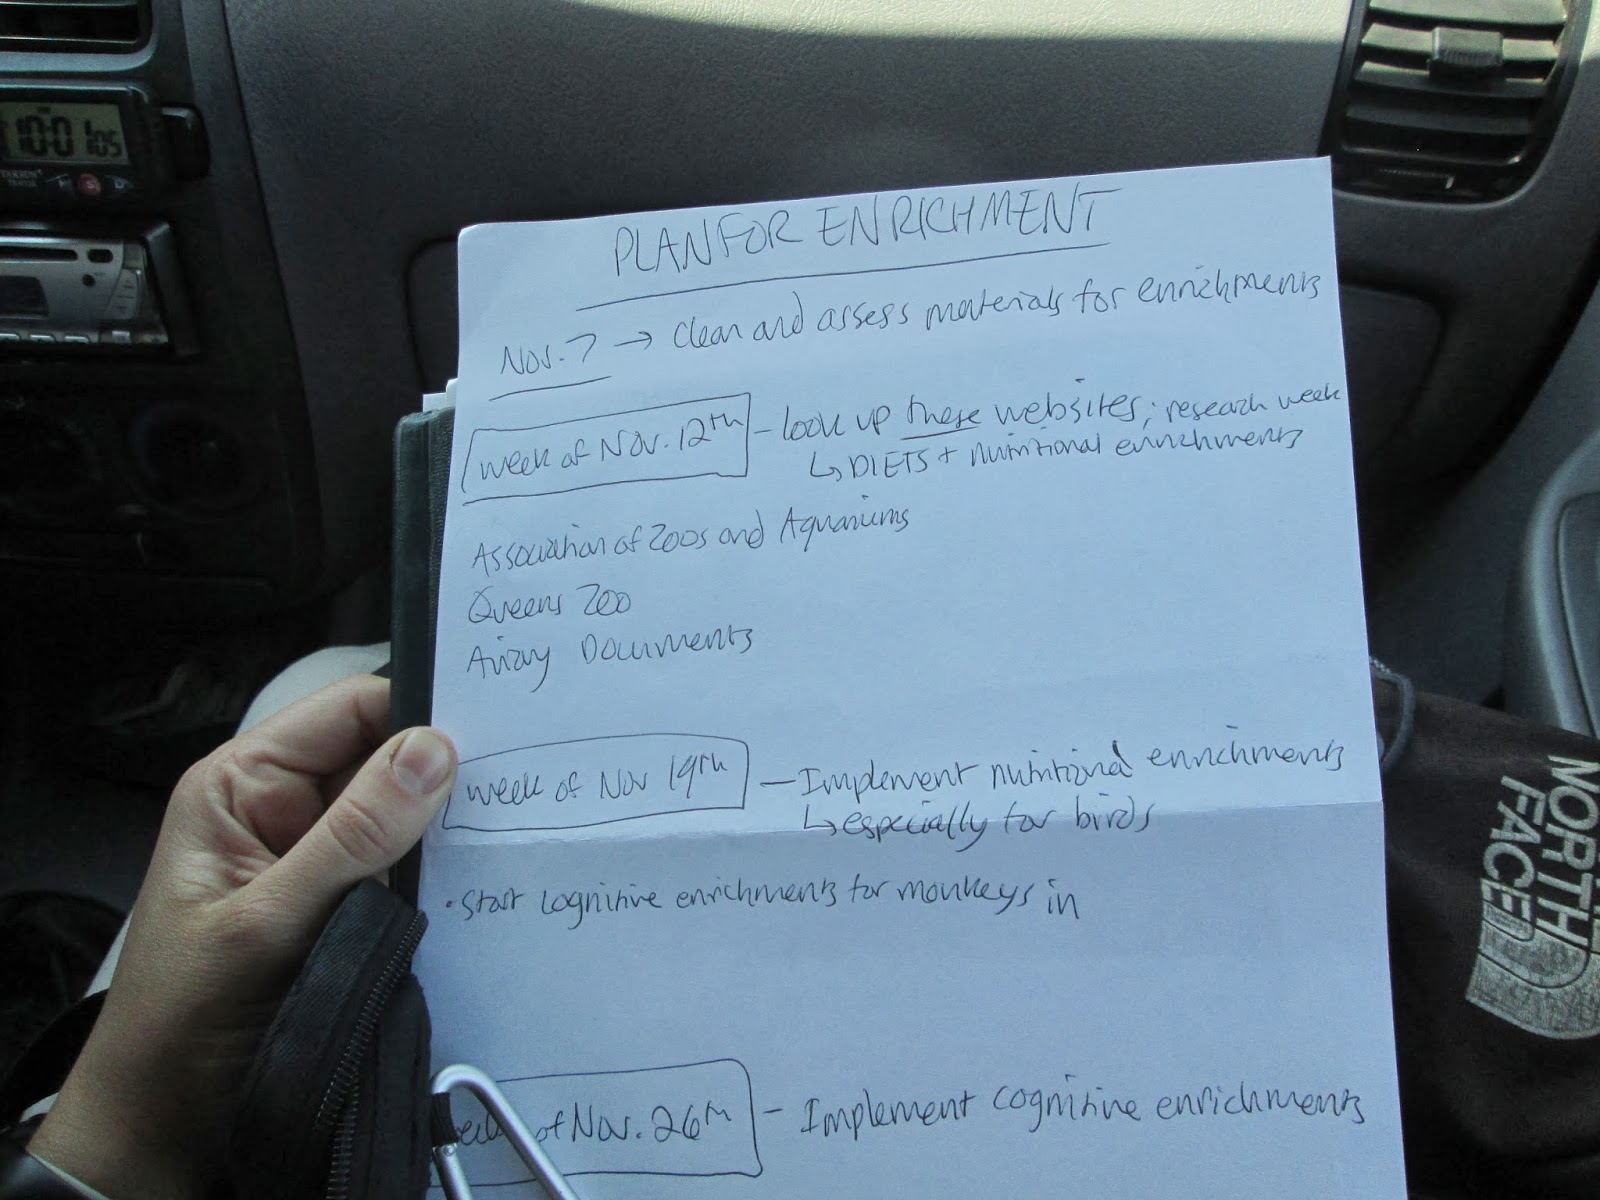 10:01 05
PLAN FOR ENRICHMENT
Nov. 7 → Clean and assess materials for enrichments
week of Nov. 12th - look up these websites; research week
↳ DIETS + nutritional enrichments
Association of Zoos and Aquariums
Queens Zoo
Aviary Documents
week of Nov 19th - Implement nutritional enrichments
↳ especially for birds
• Start cognitive enrichments for monkeys in
week of Nov. 26th - Implement cognitive enrichments
NORTH
FACE